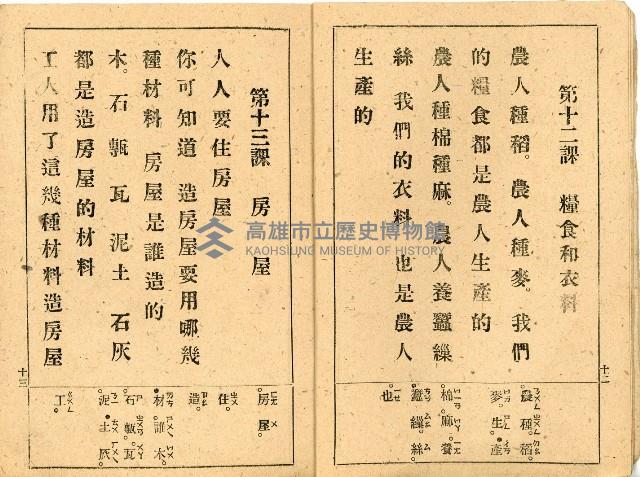 第十二課　糧食和衣料
農人種稻。農人種麥。我們
的糧食都是農人生產的
農人種棉種麻。農人養蠶繅
絲　我們的衣料　也是農人
生產的
農　種　稻。
麥。生。產
棉。麻。養
蠶　繅。絲。
也。
十二
第十三課　房　屋
人人要住房屋
你可知道　造房屋要用哪幾
種材料　房屋是誰造的
木。石　甎　瓦　泥土　石灰
都是造房屋的材料
工人用了這幾種材料造房屋
房　屋。
住。
造。
材。誰　木。
石　甎。瓦
泥。土　灰。
工。
十三
高雄市立歷史博物館
KAOHSIUNG MUSEUM OF HISTORY